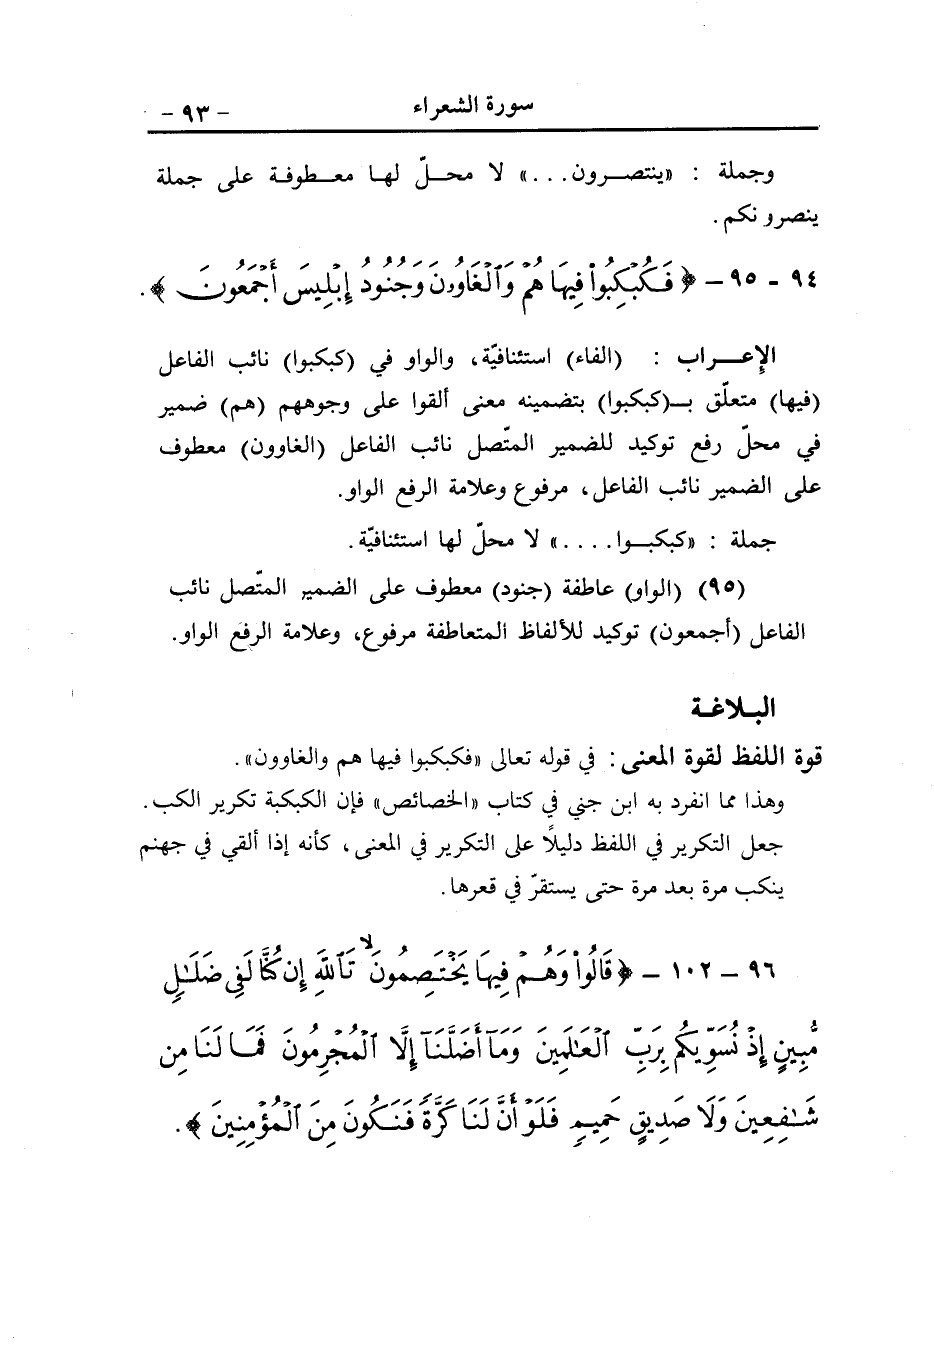 سورة الشعراء
- ٩٣ -
وجملة : «ينتصرون...» لا محلّ لها معطوفة على جملة
ينصرونكم.
٩٤ - ٩٥ - ﴿ فَكُبْكِبُوا۟ فِيهَا هُمْ وَٱلْغَاوُۥنَ وَجُنُودُ إِبْلِيسَ أَجْمَعُونَ ﴾.
الإعراب : (الفاء) استئنافيّة، والواو في (كبكبوا) نائب الفاعل
(فيها) متعلّق بـ(كبكبوا) بتضمينه معنى ألقوا على وجوههم (هم) ضمير
في محلّ رفع توكيد للضمير المتّصل نائب الفاعل (الغاوون) معطوف
على الضمير نائب الفاعل، مرفوع وعلامة الرفع الواو.
جملة : «كبكبوا....» لا محلّ لها استئنافيّة.
(٩٥) (الواو) عاطفة (جنود) معطوف على الضمير المتّصل نائب
الفاعل (أجمعون) توكيد للألفاظ المتعاطفة مرفوع، وعلامة الرفع الواو.
البلاغة
قوة اللفظ لقوة المعنى : في قوله تعالى «فكبكبوا فيها هم والغاوون».
وهذا مما انفرد به ابن جني في كتاب «الخصائص» فإن الكبكبة تكرير الكب.
جعل التكرير في اللفظ دليلاً على التكرير في المعنى، كأنه إذا ألقي في جهنم
ينكب مرة بعد مرة حتى يستقرّ في قعرها.
٩٦ - ١٠٢ - ﴿ قَالُوا۟ وَهُمْ فِيهَا يَخْتَصِمُونَ ۙ تَٱللَّهِ إِن كُنَّا لَفِى ضَلَـٰلٍ
مُّبِينٍ إِذْ نُسَوِّيكُم بِرَبِّ ٱلْعَـٰلَمِينَ وَمَآ أَضَلَّنَآ إِلَّا ٱلْمُجْرِمُونَ فَمَا لَنَا مِن
شَـٰفِعِينَ وَلَا صَدِيقٍ حَمِيمٍ فَلَوْ أَنَّ لَنَا كَرَّةً فَنَكُونَ مِنَ ٱلْمُؤْمِنِينَ ﴾.